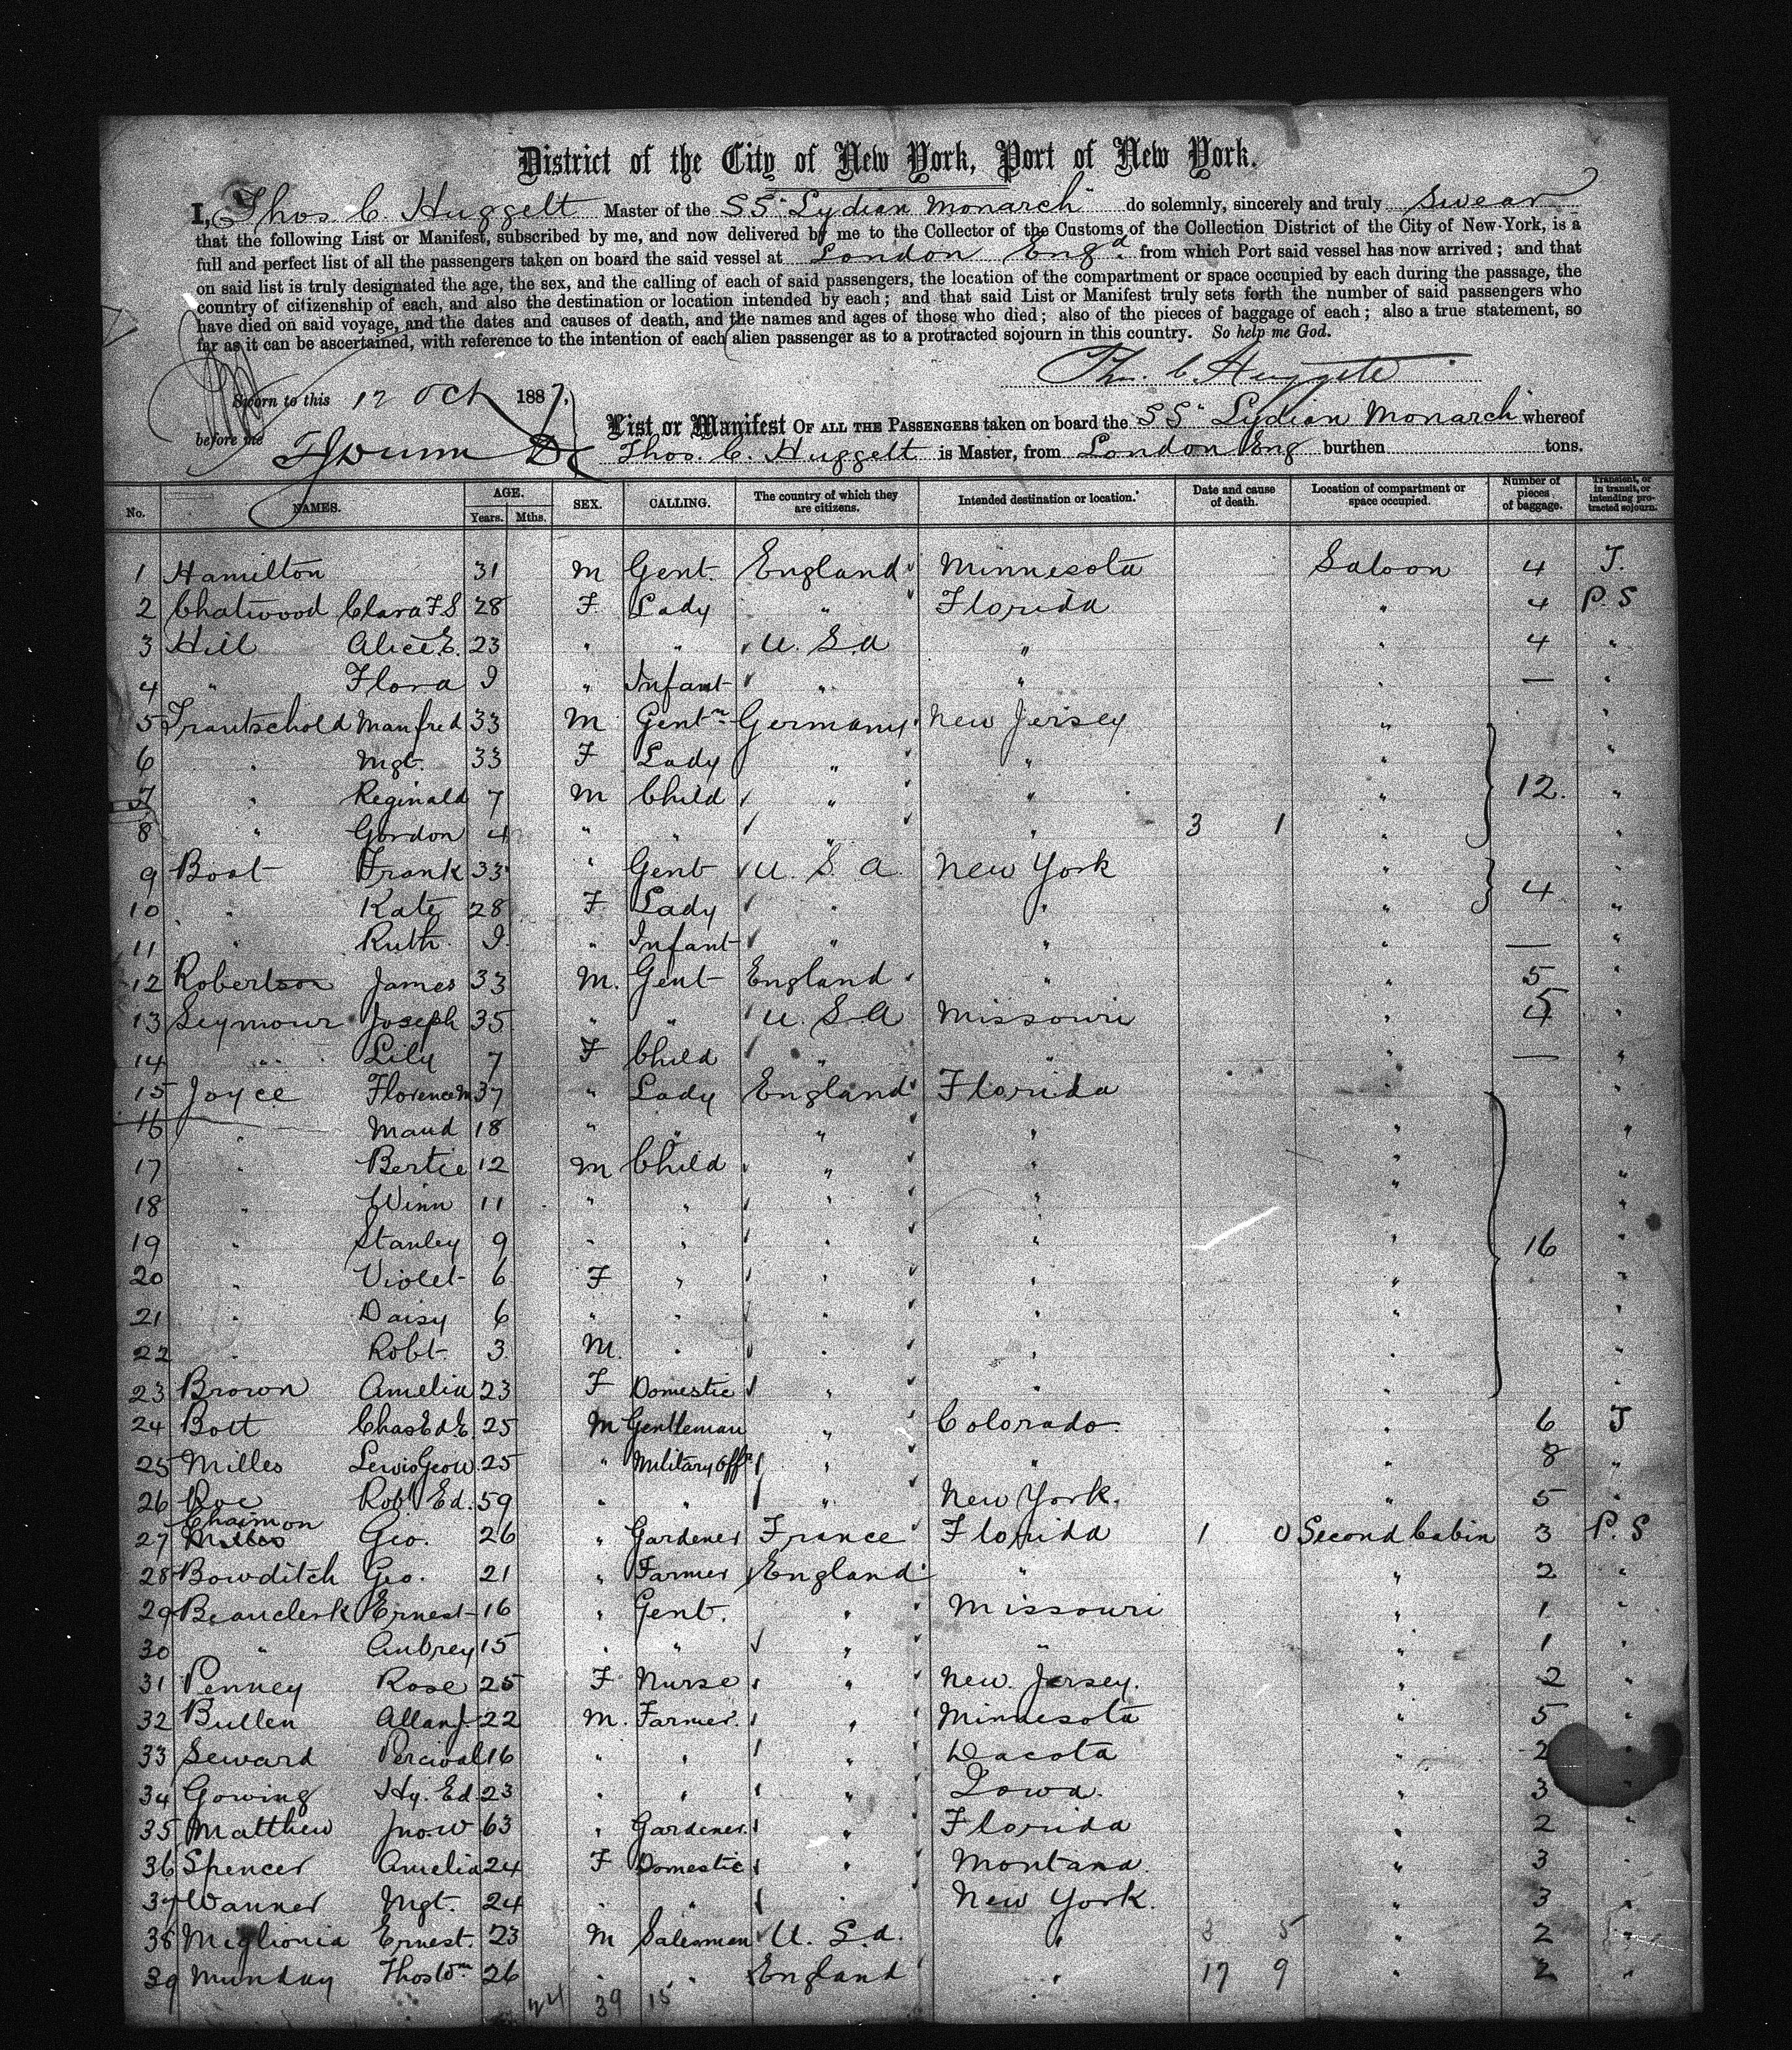 District of the City of New York, Port of New York.
I, Thos C. Huggett Master of the SS "Lydian Monarch" do solemnly, sincerely and truly swear
that the following List or Manifest, subscribed by me, and now delivered by me to the Collector of the Customs of the Collection District of the City of New-York, is a
full and perfect list of all the passengers taken on board the said vessel at London Engd. from which Port said vessel has now arrived; and that
on said list is truly designated the age, the sex, and the calling of each of said passengers, the location of the compartment or space occupied by each during the passage, the
country of citizenship of each, and also the destination or location intended by each; and that said List or Manifest truly sets forth the number of said passengers who
have died on said voyage, and the dates and causes of death, and the names and ages of those who died; also of the pieces of baggage of each; also a true statement, so
far as it can be ascertained, with reference to the intention of each alien passenger as to a protracted sojourn in this country. So help me God.
Tho. C. Huggett
Sworn to this 12 Oct 1887.
before me
List or Manifest OF ALL THE PASSENGERS taken on board the SS "Lydian Monarch" whereof
Thos. C. Huggett is Master, from London Eng burthen tons.
No. NAMES. AGE. Years. Mths. SEX. CALLING. The country of which they are citizens. Intended destination or location. Date and cause of death. Location of compartment or space occupied. Number of pieces of baggage. Transient, or in transit, or intending protracted sojourn.
1 Hamilton 31 M Gent. England Minnesota Saloon 4 T.
2 Chatwood Clara F.S 28 F Lady " Florida " 4 P.S
3 Hill Alice E. 23 " " U.S.a " " 4 "
4 " Flora 9 " Infant " " " — "
5 Trautschold Manfred 33 M Gentn Germany New Jersey " "
6 " Mgt. 33 F Lady " " " "
7 " Reginald 7 M Child " " " 12. "
8 " Gordon 4 " " " " 3 1 " "
9 Boot Frank 33 " Gent U.S.A. New York " "
10 " Kate 28 F Lady " " " 4 "
11 " Ruth 9 " Infant " " " — "
12 Robertson James 33 M. Gent England " " 5 "
13 Seymour Joseph 35 " " U.S.A Missouri " 5 "
14 " Lily 7 F Child " " " — "
15 Joyce Florence M 37 " Lady England Florida "
16 " Maud 18 " " " " " "
17 " Bertie 12 M Child " " " "
18 " Winn 11 " " " " " "
19 " Stanley 9 " " " " " 16 "
20 " Violet 6 F " " " " "
21 " Daisy 6 " " " " " "
22 " Robt. 3 M. " " " "
23 Brown Amelia 23 F Domestic " " " "
24 Bott Chas Ed E. 25 M Gentleman " Colorado " 6 T
25 Milles Lewis Geo W. 25 " Military Offr " " " 8 "
26 Roe Robt Ed. 59 " " " New York. " 5 "
Chaimon
27 Milles Geo. 26 " Gardener France Florida 1 0 Second Cabin 3 P.S
28 Bowditch Geo. 21 " Farmer England " " 2 "
29 Beauclerk Ernest 16 " Gent. " Missouri " 1 "
30 " Aubrey 15 " " " " " 1 "
31 Penney Rose 25 F Nurse " New Jersey. " 2 "
32 Bullen Allan J. 22 M. Farmer. " Minnesota " 5 "
33 Seward Percival 16 " " " Dacota " 2 "
34 Gowing Hy. Ed. 23 " " " Iowa. " 3 "
35 Matthew Jno. W 63 " Gardener. " Florida " 2 "
36 Spencer Amelia 24 F Domestic " Montana. " 3 "
37 Wanner Mgt. 24 " " " New York. " 3 "
38 Miglionia Ernest. 23 M Salesman U.S.a. " 3 5 " 2 "
39 Munday Thos Wm 26 " " England " 17 9 " 2 "
39 15